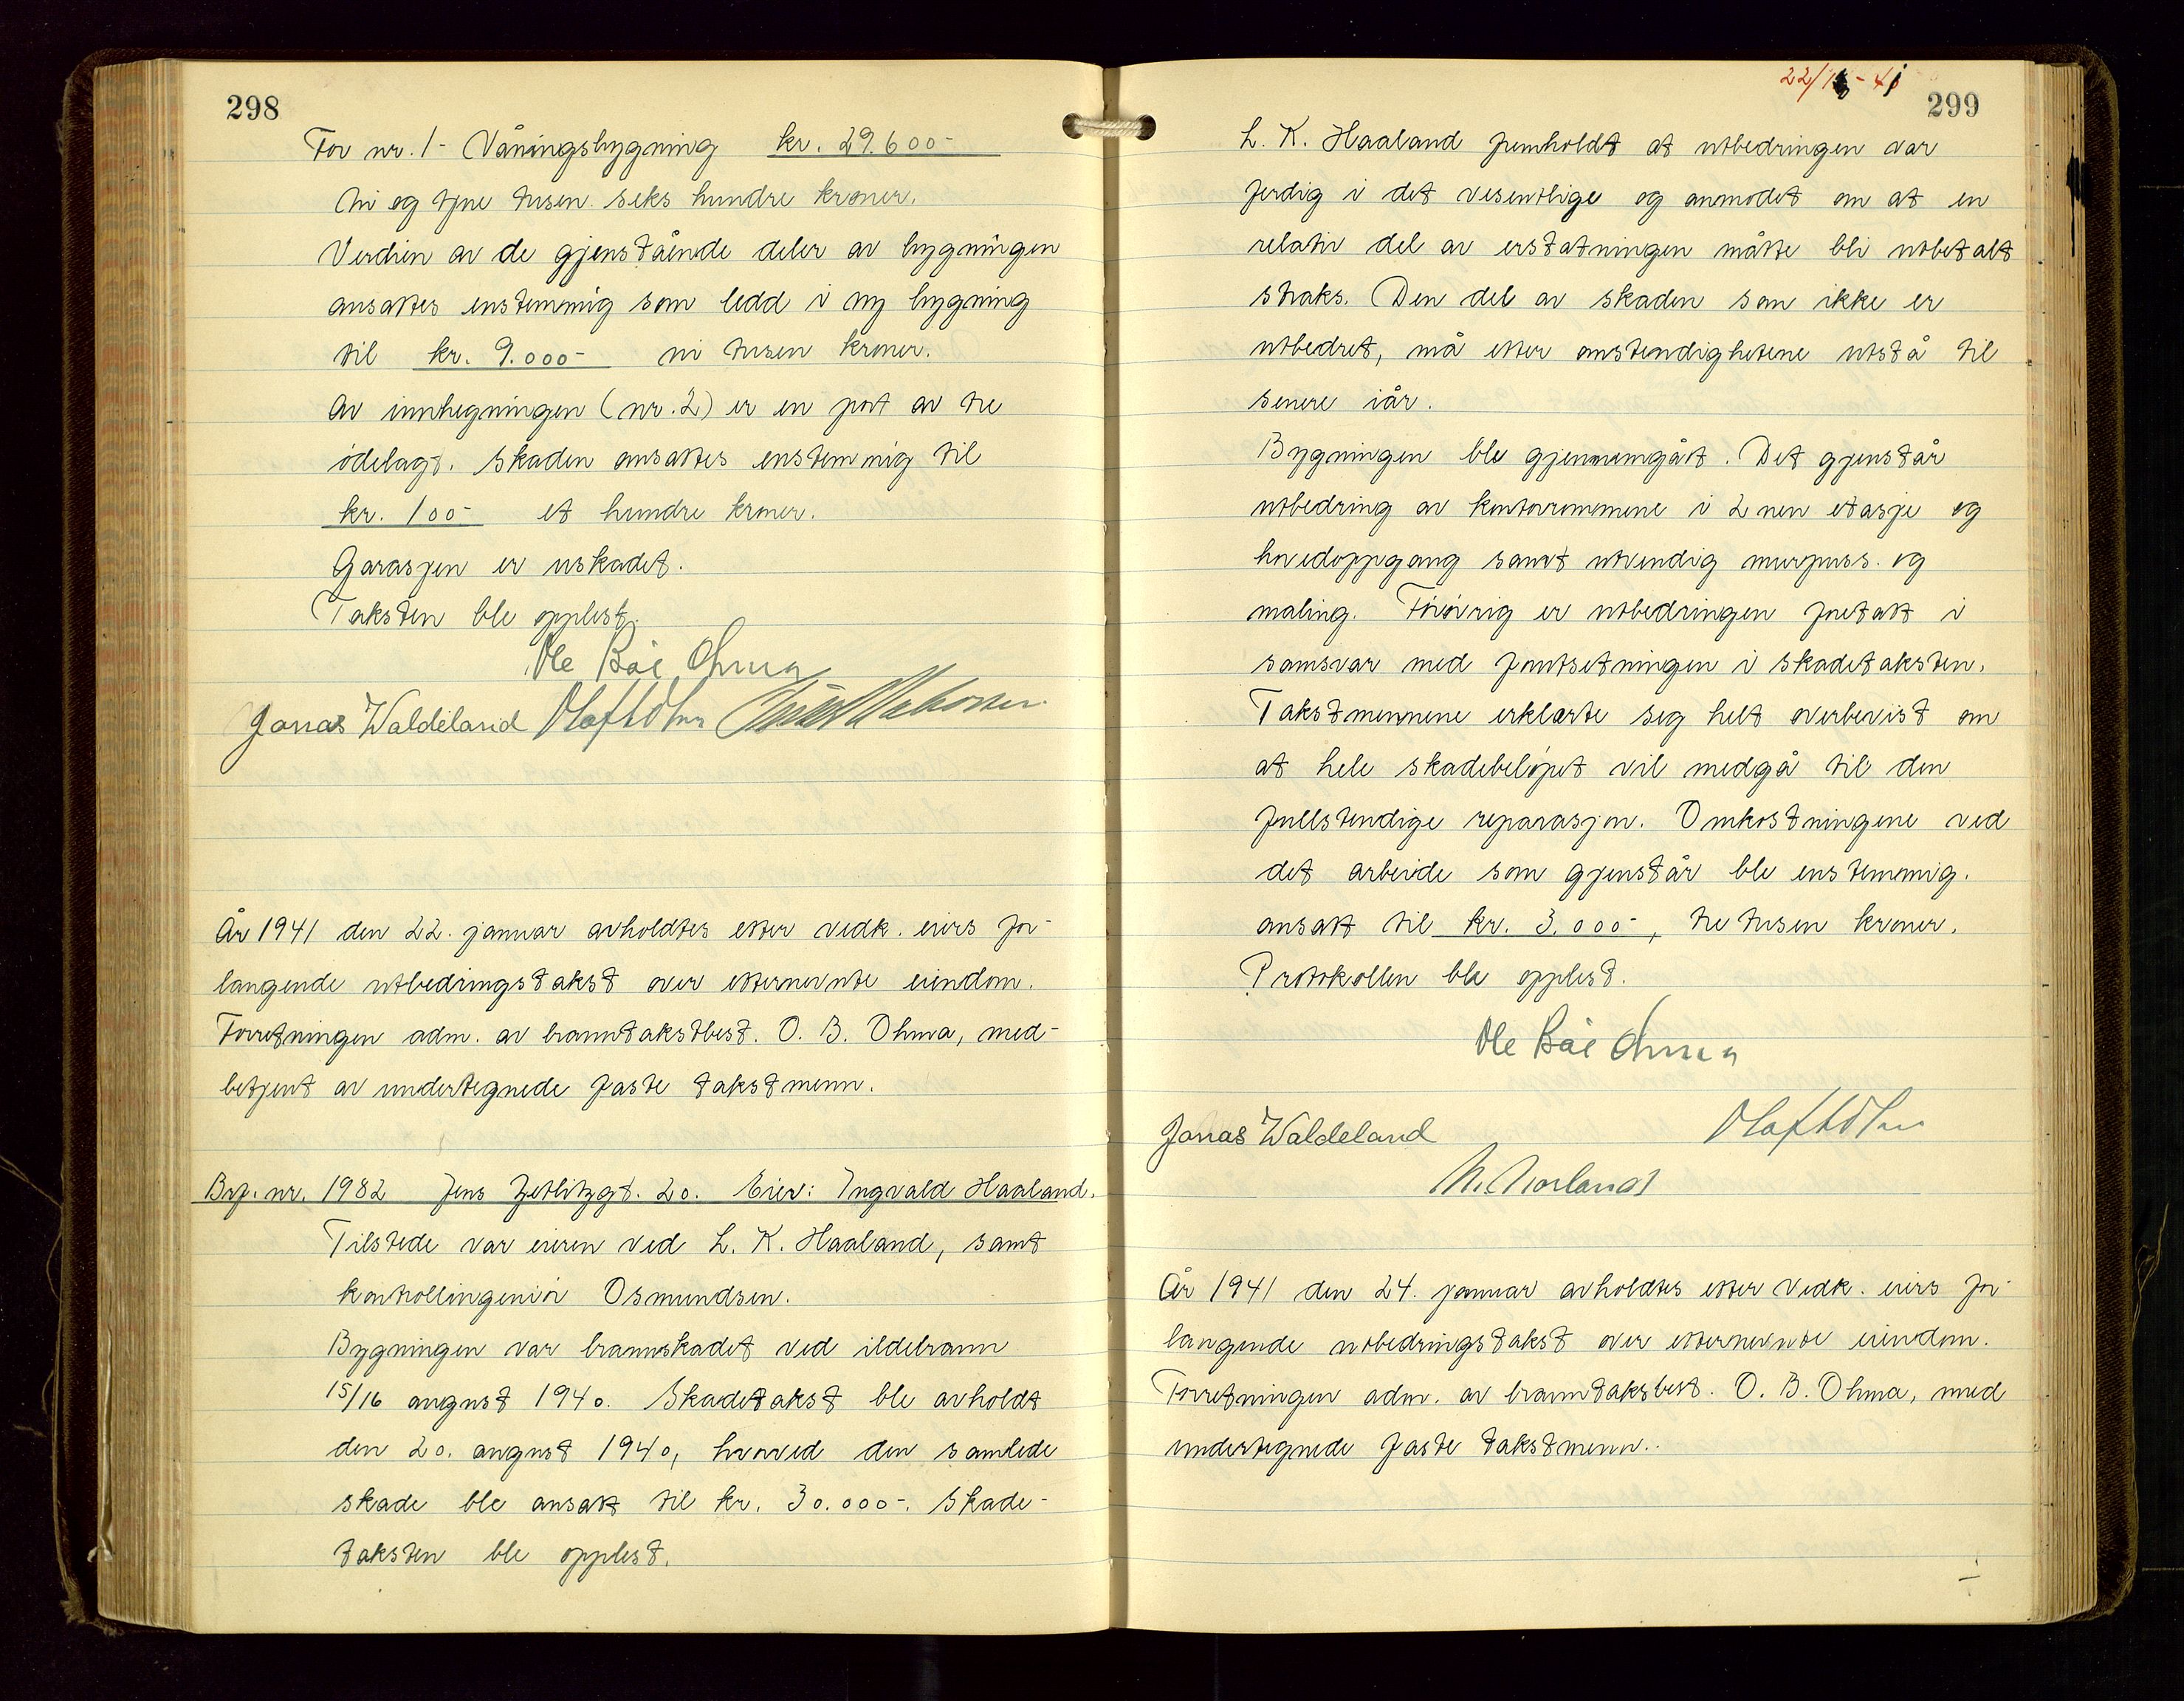 298
For nr. 1 - Våningsbygning kr. 29.600-
Ni og tjue tusen seks hundre kroner.
Verdien av de gjenstående deler av bygningen
ansattes enstemmig som ledd i ny bygning
til kr. 9.000- ni tusen kroner.
Av innhegningen (nr. 2) er en port av tre
ödelagt. Skaden ansattes enstemmig til
kr. 100- et hundre kroner.
Garasjen er uskadet.
Taksten ble opplest.
Ole Båe Ohma
Jonas Waldeland Olaf
År 1941 den 22. januar avholdtes etter vedk. eiers for-
langende utbedringstakst over etternevnte eiendom.
Forretningen adm. av branntakstbest. O. B. Ohma, med-
betjent av undertegnede faste takstmenn.
Brf. nr. 1982 Jens Zetlitzgt. 20. Eier: Ingvald Haaland.
Tilstede var eieren ved L. K. Haaland, samt
kontrollingeniör Osmundsen.
Bygningen var brannskadet ved ildebrann
15/16 august 1940. Skadetakst ble avholdt
den 20. august 1940, hvorved den samlede
skade ble ansatt til kr. 30.000-. Skade-
taksten ble opplest.
299
L. K. Haaland fremholdt at utbedringen var
ferdig i det vesentlige og anmodet om at en
relativ del av erstatningen måtte bli utbetalt
straks. Den del av skaden som ikke er
utbedret, må etter omstendighetene utstå til
senere iår.
Bygningen ble gjennemgått. Det gjenstår
utbedring av kontorrommene i 2nen etasje og
hovedoppgang samt utvendig murpuss. og
maling. Forövrig er utbedringen foretatt i
samsvar med forutsetningen i skadetaksten.
Takstmennene erklærte seg helt overbevist om
at hele skadebelöpet vil medgå til den
fullstendige reparasjon. Omkostningene ved
det arbeide som gjenstår ble enstemmig.
ansatt til kr. 3.000-, tre tusen kroner.
Protokollen ble opplest.
Ole Båe Ohma
Jonas Waldeland Olaf
År 1941 den 24. januar avholdtes etter vedk. eiers for-
langende utbedringstakst over etternevnte eiendom.
Forretningen adm. av branntaksbest. O. B. Ohma, med
undertegnede faste takstmenn.